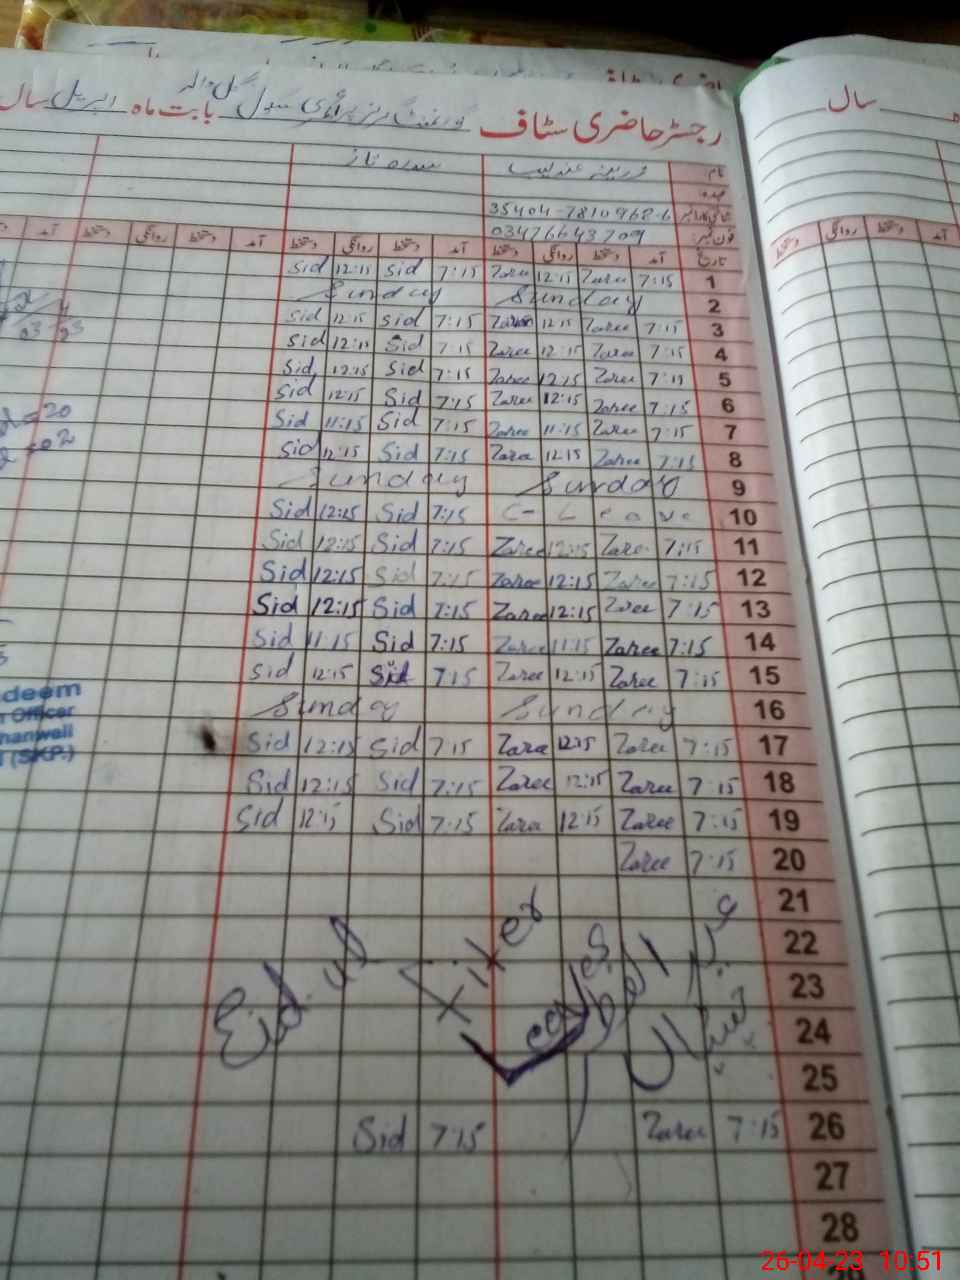 رجسٹر حاضری سٹاف گورنمنٹ گرلز پرائمری سکول بابت ماہ اپریل سال
سال
نام زرینہ عندلیب سدرہ ناز
عہدہ
شناختی کارڈ نمبر 35404-7810968-6
فون نمبر 03476643709
تاریخ آمد دستخط روانگی دستخط آمد دستخط روانگی دستخط آمد دستخط روانگی دستخط
1 7:15 Zaree 12:15 Zaree 7:15 Sid 12:15 Sid
2 Sunday Sunday
3 7:15 Zaree 12:15 Zaree 7:15 Sid 12:15 Sid
4 7:15 Zaree 12:15 Zaree 7:15 Sid 12:15 Sid
5 7:15 Zaree 12:15 Zaree 7:15 Sid 12:15 Sid
6 7:15 Zaree 12:15 Zaree 7:15 Sid 12:15 Sid
7 7:15 Zaree 11:15 Zaree 7:15 Sid 11:15 Sid
8 7:15 Zaree 12:15 Zaree 7:15 Sid 12:15 Sid
9 Sunday Sunday
10 C-Leave 7:15 Sid 12:15 Sid
11 7:15 Zaree 12:15 Zaree 7:15 Sid 12:15 Sid
12 7:15 Zaree 12:15 Zaree 7:15 Sid 12:15 Sid
13 7:15 Zaree 12:15 Zaree 7:15 Sid 12:15 Sid
14 7:15 Zaree 11:15 Zaree 7:15 Sid 11:15 Sid
15 7:15 Zaree 12:15 Zaree 7:15 Sid 12:15 Sid
16 Sunday Sunday
17 7:15 Zaree 12:15 Zara 7:15 Sid 12:15 Sid
18 7:15 Zaree 12:15 Zaree 7:15 Sid 12:15 Sid
19 7:15 Zaree 12:15 Zara 7:15 Sid 12:15 Sid
20 7:15 Zaree
21
22
23
24
25
Eid.ul-Fiter
عید الفطر
26 7:15 Zaree 7:15 Sid
27
28
deem
Officer
hanwali
(SKP.)
26-04-23 10:51